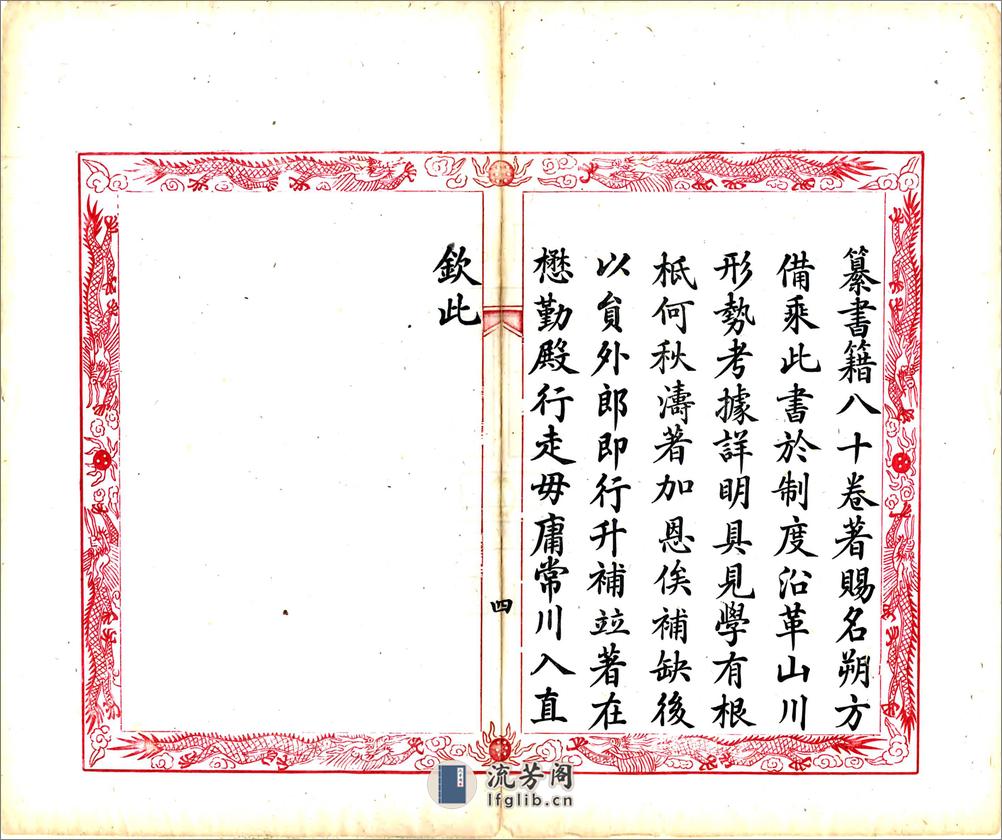 纂書籍八十卷著賜名朔方
備乘此書於制度沿革山川
形勢考據詳明具見學有根
柢何秋濤著加恩俟補缺後
以員外郎即行升補竝著在
懋勤殿行走毋庸常川入直
欽此
四
流芳阁
lfglib.cn